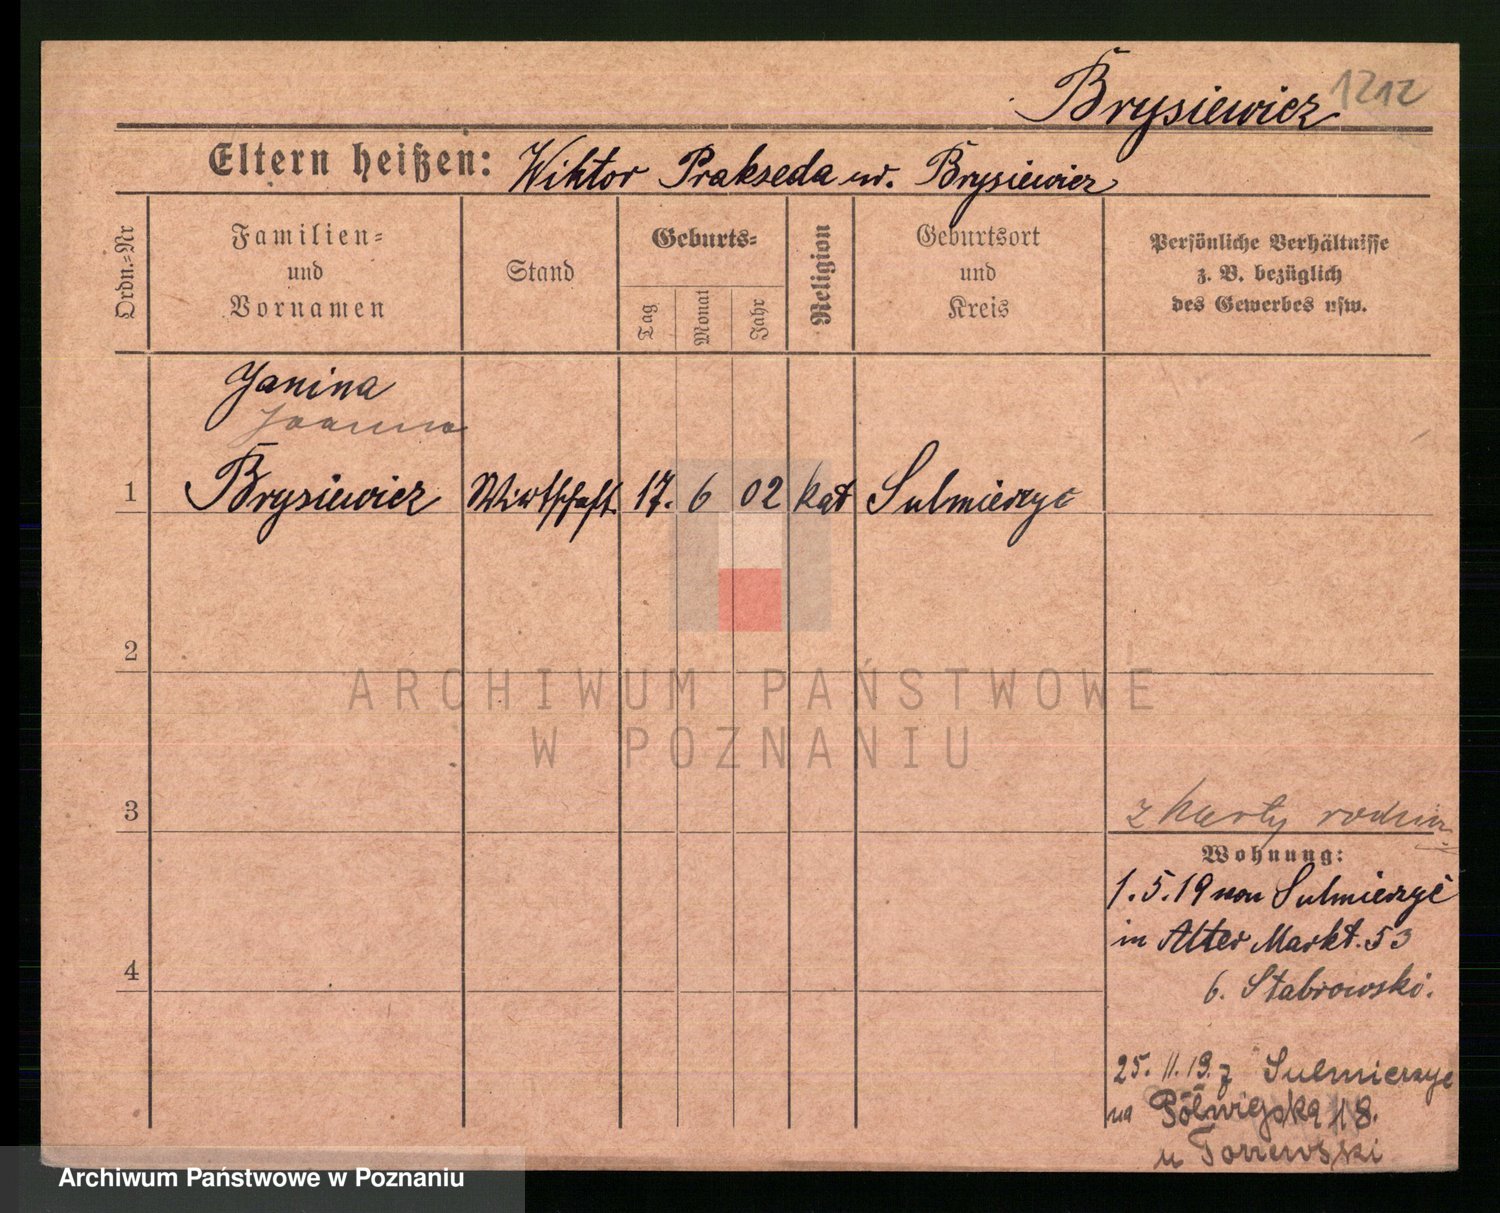 Brysiewicz 1212
Eltern heißen: Wiktor Prakseda ur. Brysiewicz
Ordn.-Nr
Familien-
und
Vornamen
Stand
Geburts-
Tag
Monat
Jahr
Religion
Geburtsort
und
Kreis
Persönliche Verhältnisse
z. B. bezüglich
des Gewerbes usw.
Janina
Joanna
1 Brysiewicz Wirtschaft. 17. 6 02 kat Sulmierzyc
2
3
z karty rodzin
Wohnung:
1.5.19 von Sulmierzyć
in Alter Markt. 53
b. Stabrowski.
4
25.11.19. z Sulmierzyc
na 18.
u
ARCHIWUM PAŃSTWOWE
W POZNANIU
Archiwum Państwowe w Poznaniu